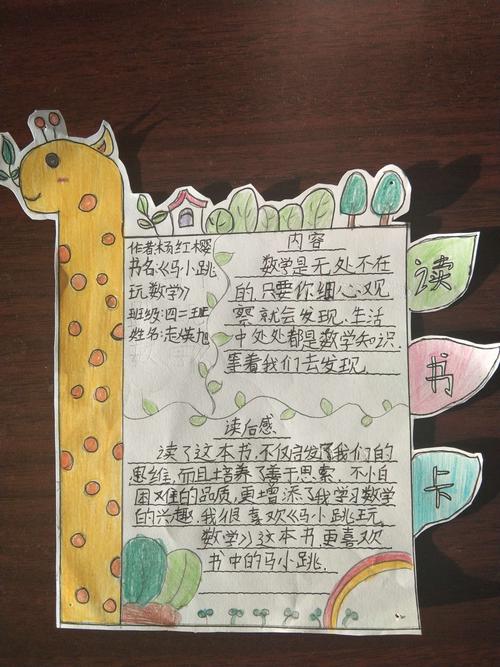 作者:杨红樱
书名:《马小跳
玩数学》
班级:四二班
姓名:志媖旭
内容
数学是无处不在
的,只要你细心观
察就会发现,生活
中处处都是数学知识.
等着我们去发现.
读后感
读了这本书,不仅启发了我们的
思维,而且培养了善于思索、不怕
困难的品质,更增添了我学习数学
的兴趣.我很喜欢《马小跳玩
数学》这本书,更喜欢
书中的马小跳.
读
书
卡